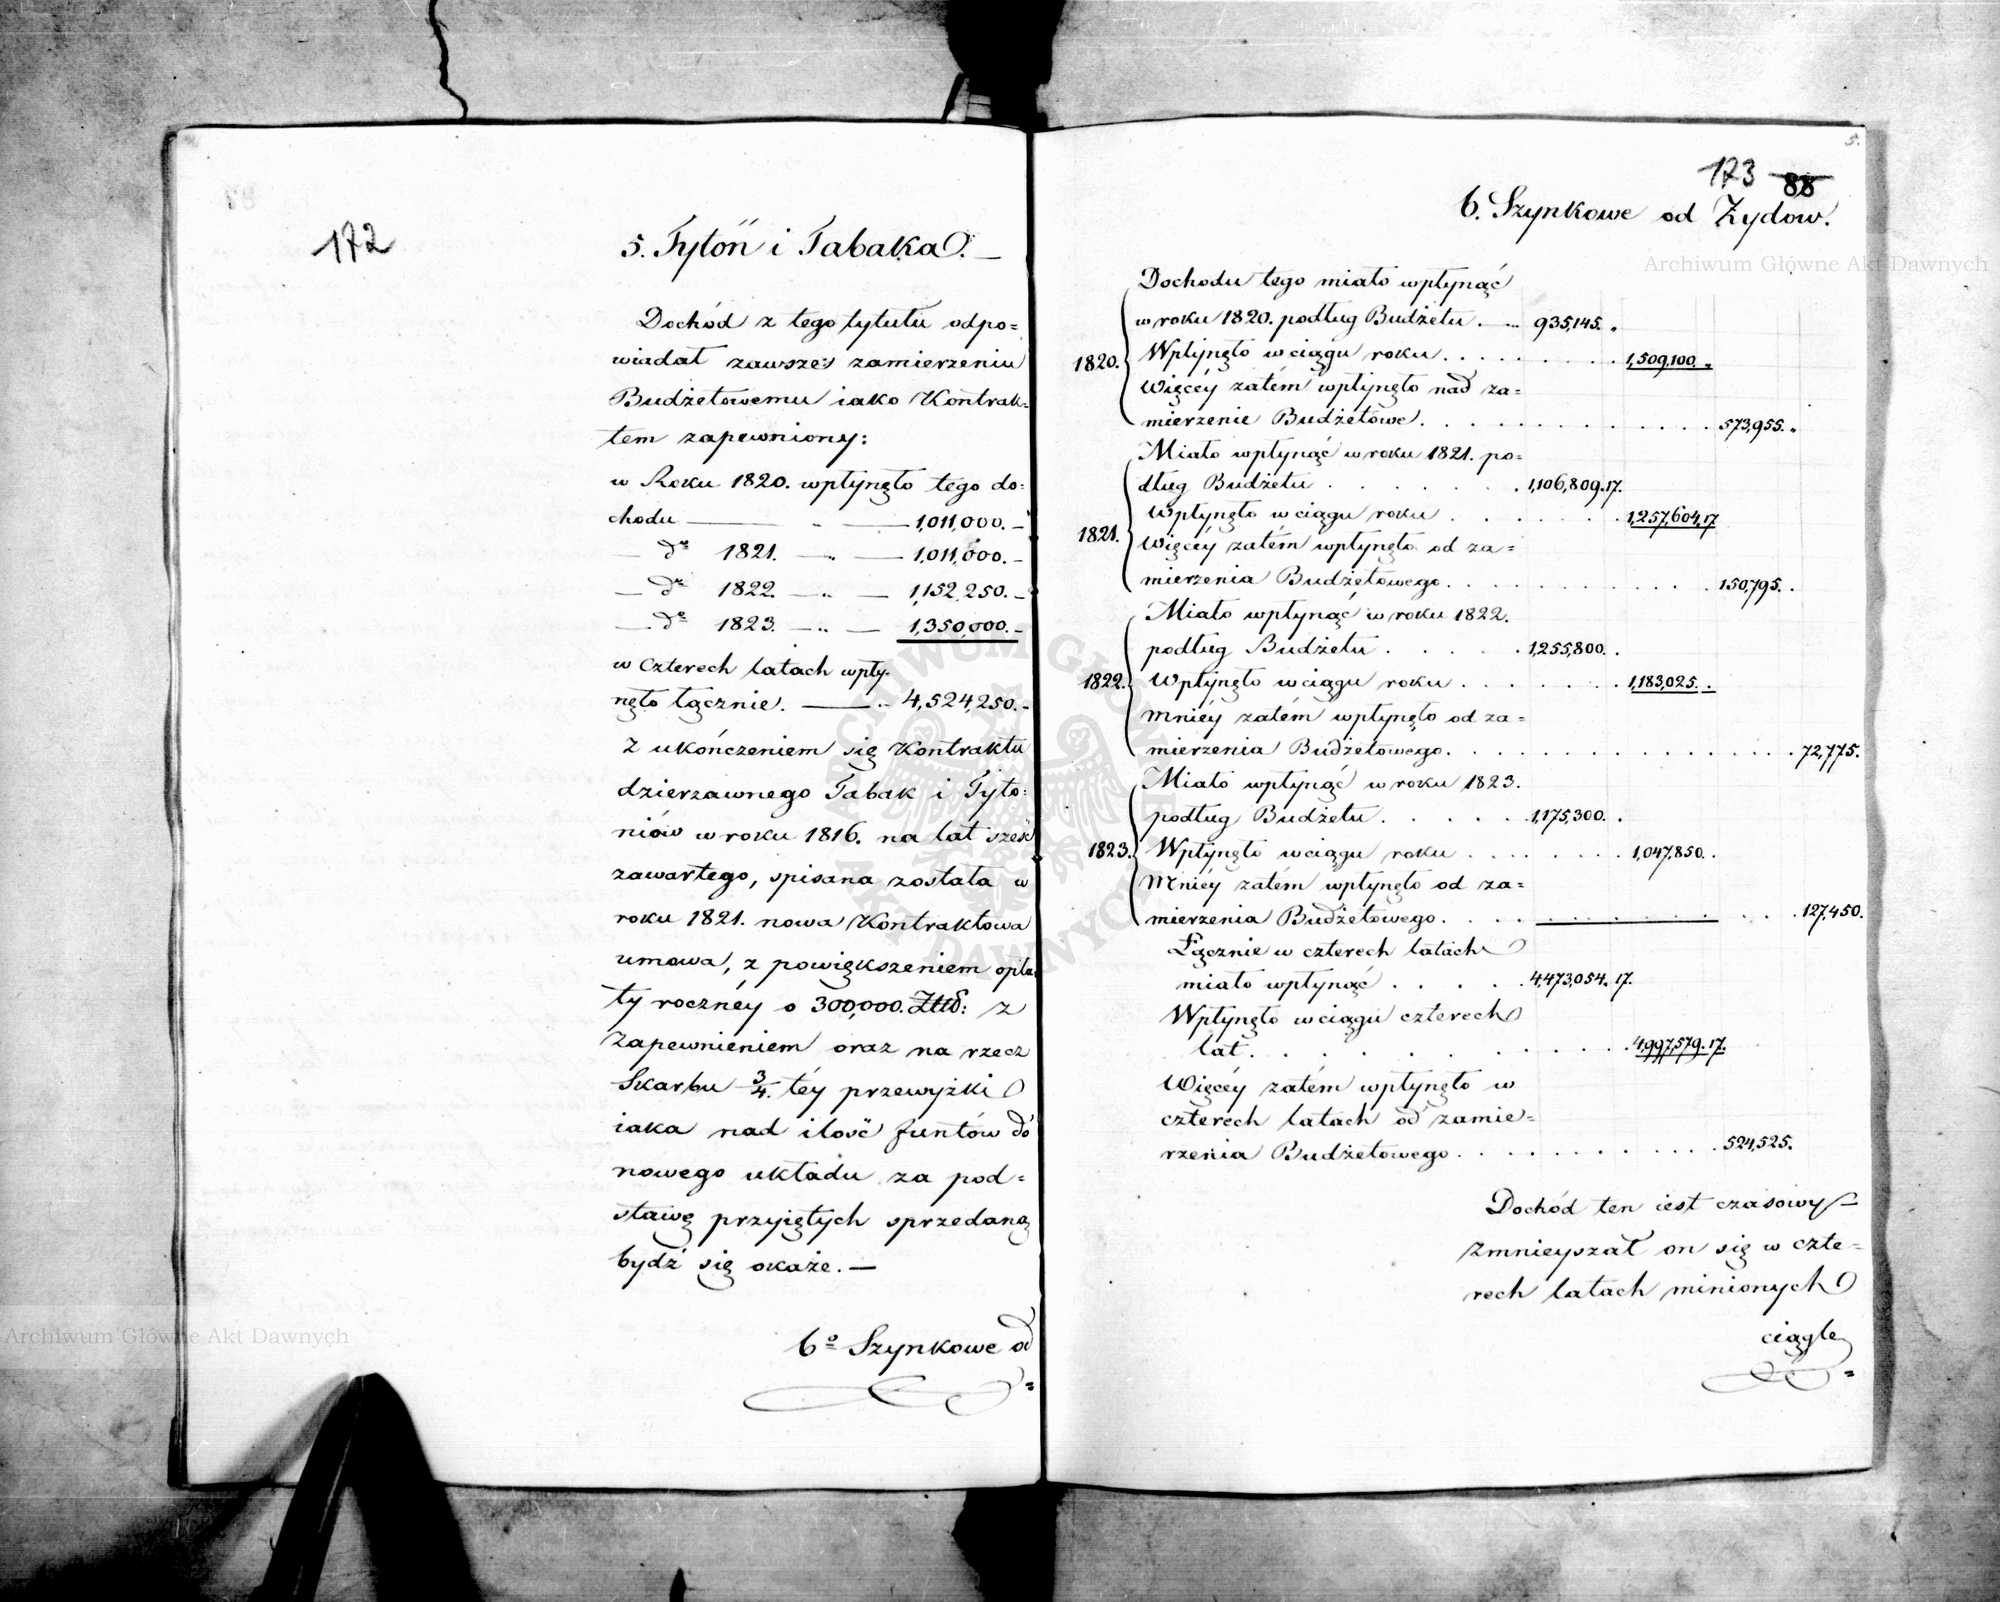 172
5. Tytóń i Tabaka. —
Dochód z tego tytułu odpo=
wiadał zawsze zamierzeniu
Budżetowemu iako Kontrak=
tem zapewniony:
w Roku 1820. wpłynęło tego do=
chodu — „ — 1,011,000. —
— dto 1821. — „ — 1,011,000. —
— dto 1822. — „ — 1,152,250. —
— dto 1823. — „ — 1,350,000. —
w czterech latach wpły-
nęło łącznie. — „ 4,524,250. -
Z ukończeniem się Kontraktu
dzierzawnego Tabak i Tyto=
niów w roku 1816. na lat sześć
zawartego, spisana została w
roku 1821. nowa Kontraktowa
umowa, z powiększeniem opła=
ty rocznéy o 300,000. Złtt: z
Zapewnieniem oraz na rzecz
Skarbu 3/4. téy przewyżki
iaka nad ilość funtów do
nowego układu za pod=
stawę przyiętych sprzedaną
bydź się okaże. —
6o Szynkowe od =
5.
173 88
6. Szynkowe od Żydów.
Dochodu tego miało wpłynąć
w roku 1820. podług Budżetu . — „ 935,145. „
1820. Wpłynęło w ciągu roku . . . . . . . . 1,509,100. „
Więcéy zatém wpłynęło nad za=
mierzenie Budżetowe . . . . . . . . . . . . 573,955. „
Miało wpłynąć w roku 1821. po=
dług Budżetu . . . . . . 1,106,809.17.
Wpłynęło w ciągu roku . . . . . . 1,257,604,17
1821. Więcéy zatém wpłynęło od za=
mierzenia Budżetowego . . . . . . . . . . 150,795. .
Miało wpłynąć w roku 1822.
podług Budżetu . . . . . 1,255,800. .
1822. Wpłynęło w ciągu roku . . . . . . 1,183,025. .
Mniéy zatém wpłynęło od za=
mierzenia Budżetowego . . . . . . . . . . . . . . 72,775.
Miało wpłynąć w roku 1823.
podług Budżetu . . . . . . 1,175,300. .
1823. Wpłynęło w ciągu roku . . . . . . . 1,047,850. .
Mniéy zatém wpłynęło od za=
mierzenia Budżetowego . . . . . . . . . . . . . . 127,450.
Łącznie w czterech latach
miało wpłynąć . . . . . 4,473,054. 17.
Wpłynęło w ciągu czterech
lat . . . . . . . . . . . 4,997,579. 17.
Więcéy zatém wpłynęło w
czterech latach od zamie=
rzenia Budżetowego . . . . . . . . . . 524,525.
Dochód ten iest czasowy —
Zmnieyszał on się w czte=
rech latach minionych
ciągle =
Archiwum Główne Akt Dawnych
Archiwum Główne Akt Dawnych
ARCHIWUM GŁÓWNE AKT DAWNYCH